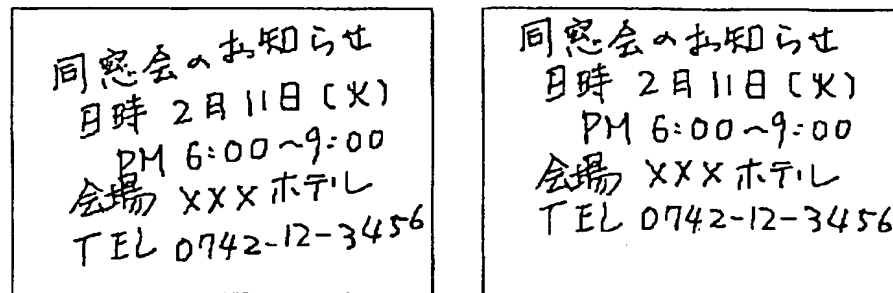 同窓会のお知らせ
日時 2月11日(火)
PM 6:00~9:00
会場 XXXホテル
TEL 0742-12-3456
同窓会のお知らせ
日時 2月11日(火)
PM 6:00~9:00
会場 XXXホテル
TEL 0742-12-3456